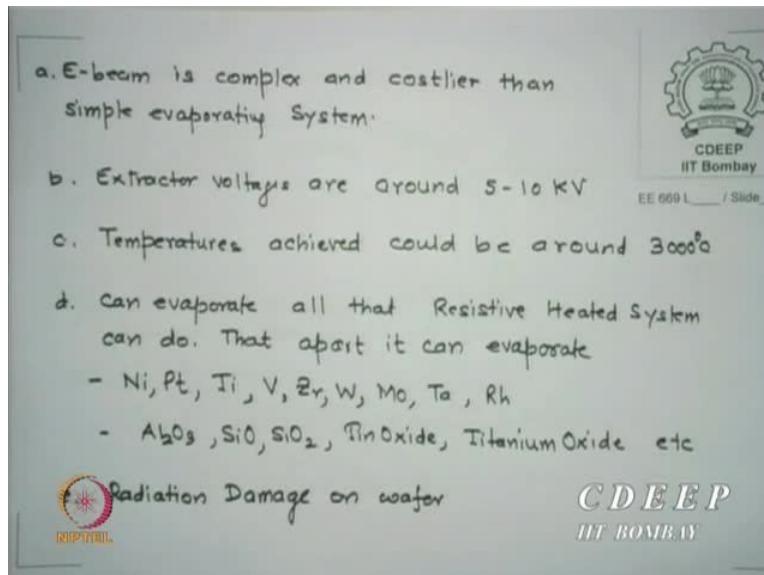 a. E-beam is complex and costlier than
simple evaporating System.
b. Extractor voltages are around 5-10 KV
c. Temperatures achieved could be around 3000°C
d. Can evaporate all that Resistive Heated System
can do. That apart it can evaporate
- Ni, Pt, Ti, V, Zr, W, Mo, Ta, Rh
- Al2O3, SiO, SiO2, Tin Oxide, Titanium Oxide etc
Radiation Damage on wafer
CDEEP
IIT Bombay
EE 669 L___ / Slide_
NPTEL
CDEEP
IIT BOMBAY